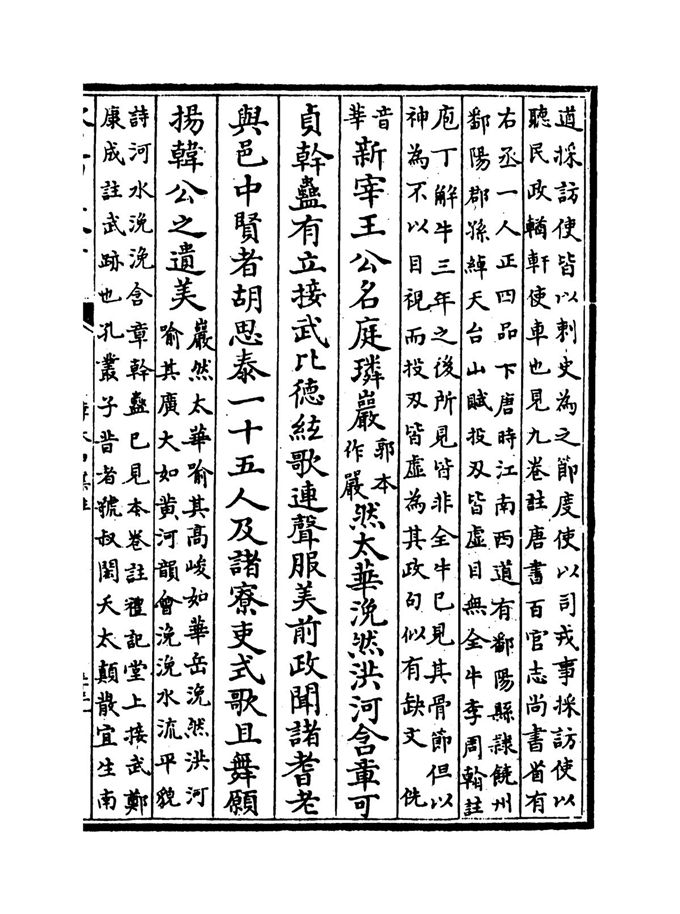 道採訪使皆以刺史為之節度使以司戎事採訪使以
聽民政輶軒使車也見九卷註唐書百官志尚書省有
右丞一人正四品下唐時江南西道有鄱陽縣隸饒州
鄱陽郡孫綽天台山賦投刃皆虛目無全牛李周翰註
庖丁解牛三年之後所見皆非全牛已見其骨節但以
神為不以目視而投刃皆虛為其政句似有缺文 侁
音
華
新宰王公名庭璘巖
郭本
作嚴
然太華浼然洪河含章可
貞幹蠱有立接武比德絃歌連聲服美前政聞諸耆老
與邑中賢者胡思泰一十五人及諸寮吏式歌且舞願
揚韓公之遺美
巖然太華喻其高峻如華岳浼然洪河
喻其廣大如黄河韻會浼浼水流平貌
詩河水浼浼含章幹蠱已見本卷註禮記堂上接武鄭
康成註武跡也孔叢子昔者虢叔閎夭太顛散宜生南